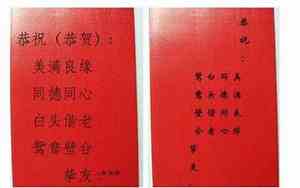 恭祝（恭贺）：
美满良缘
同德同心
白头偕老
鸳鸯璧合
挚友
恭祝：
美满良缘
同德同心
白头偕老
鸳鸯璧合
挚友